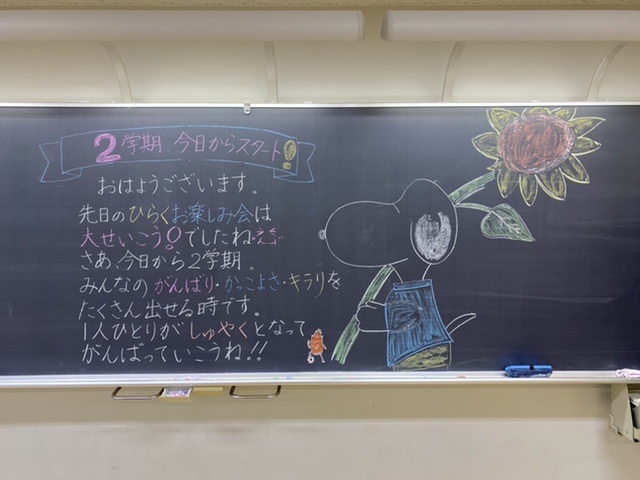 2学期、今日からスタート!
おはようございます。
先日のひらくお楽しみ会は
大せいこう!でしたね
さあ、今日から2学期。
みんなのがんばり・かっこよさ・キラリを
たくさん出せる時です。
1人ひとりがしゅやくとなって
がんばっていこうね!!